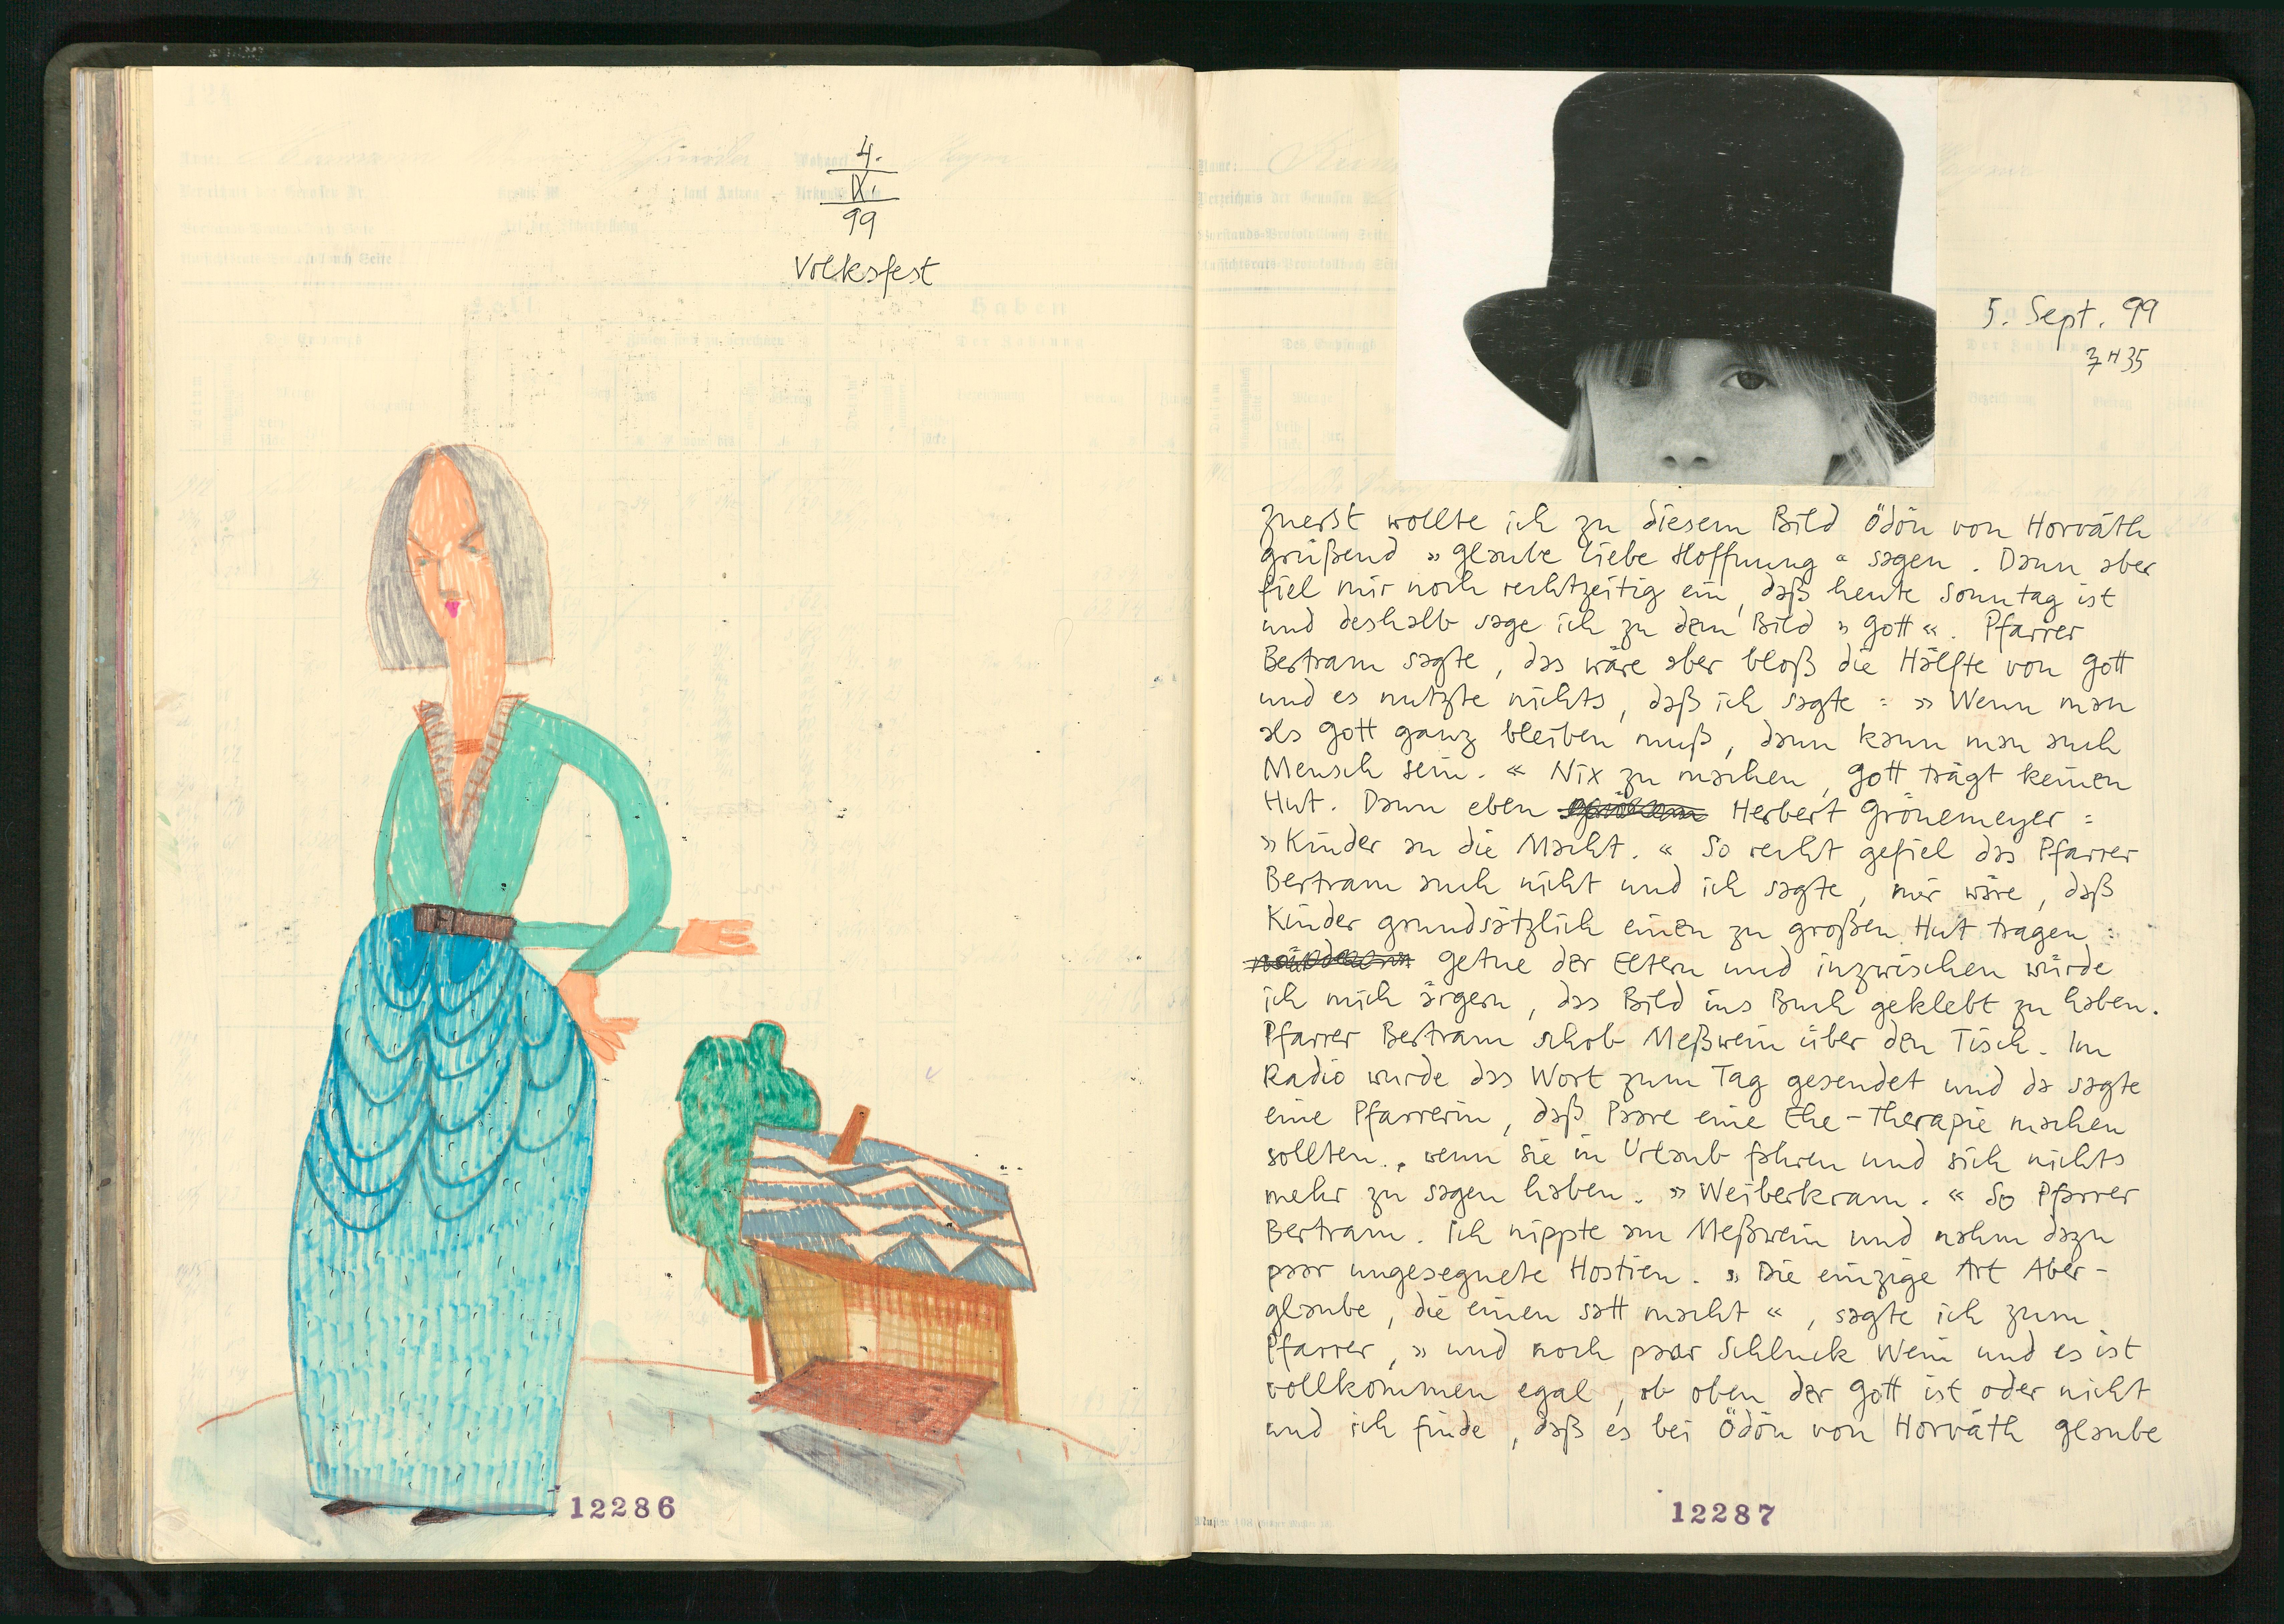 4.
IX.
99
Volksfest
12286
5. Sept. 99
7 H 35
Zuerst wollte ich zu diesem Bild Ödön von Horváth
grüßend »Glaube Liebe Hoffnung« sagen. Dann aber
fiel mir noch rechtzeitig ein, daß heute Sonntag ist
und deshalb sage ich zu dem Bild »Gott«. Pfarrer
Bertram sagte, das wäre aber bloß die Hälfte von Gott
und es nutzte nichts, daß ich sagte: »Wenn man
als Gott ganz bleiben muß, dann kann man auch
Mensch sein.« Nix zu machen, Gott trägt keinen
Hut. Dann eben Herbert Grönemeyer:
»Kinder an die Macht.« So recht gefiel das Pfarrer
Bertram auch nicht und ich sagte, mir wäre, daß
Kinder grundsätzlich einen zu großen Hut tragen:
Getue der Eltern und inzwischen würde
ich mich ärgern, das Bild ins Buch geklebt zu haben.
Pfarrer Bertram schob Meßwein über den Tisch. Im
Radio wurde das Wort zum Tag gesendet und da sagte
eine Pfarrerin, daß Paare eine Ehe-Therapie machen
sollten, wenn sie in Urlaub fahren und sich nichts
mehr zu sagen haben. »Weiberkram.« So Pfarrer
Bertram. Ich nippte am Meßwein und nahm dazu
paar ungesegnete Hostien. »Die einzige Art Aber-
glaube, die einen satt macht«, sagte ich zum
Pfarrer, »und noch paar Schluck Wein und es ist
vollkommen egal, ob oben der Gott ist oder nicht
und ich finde, daß es bei Ödön von Horváth Glaube
12287